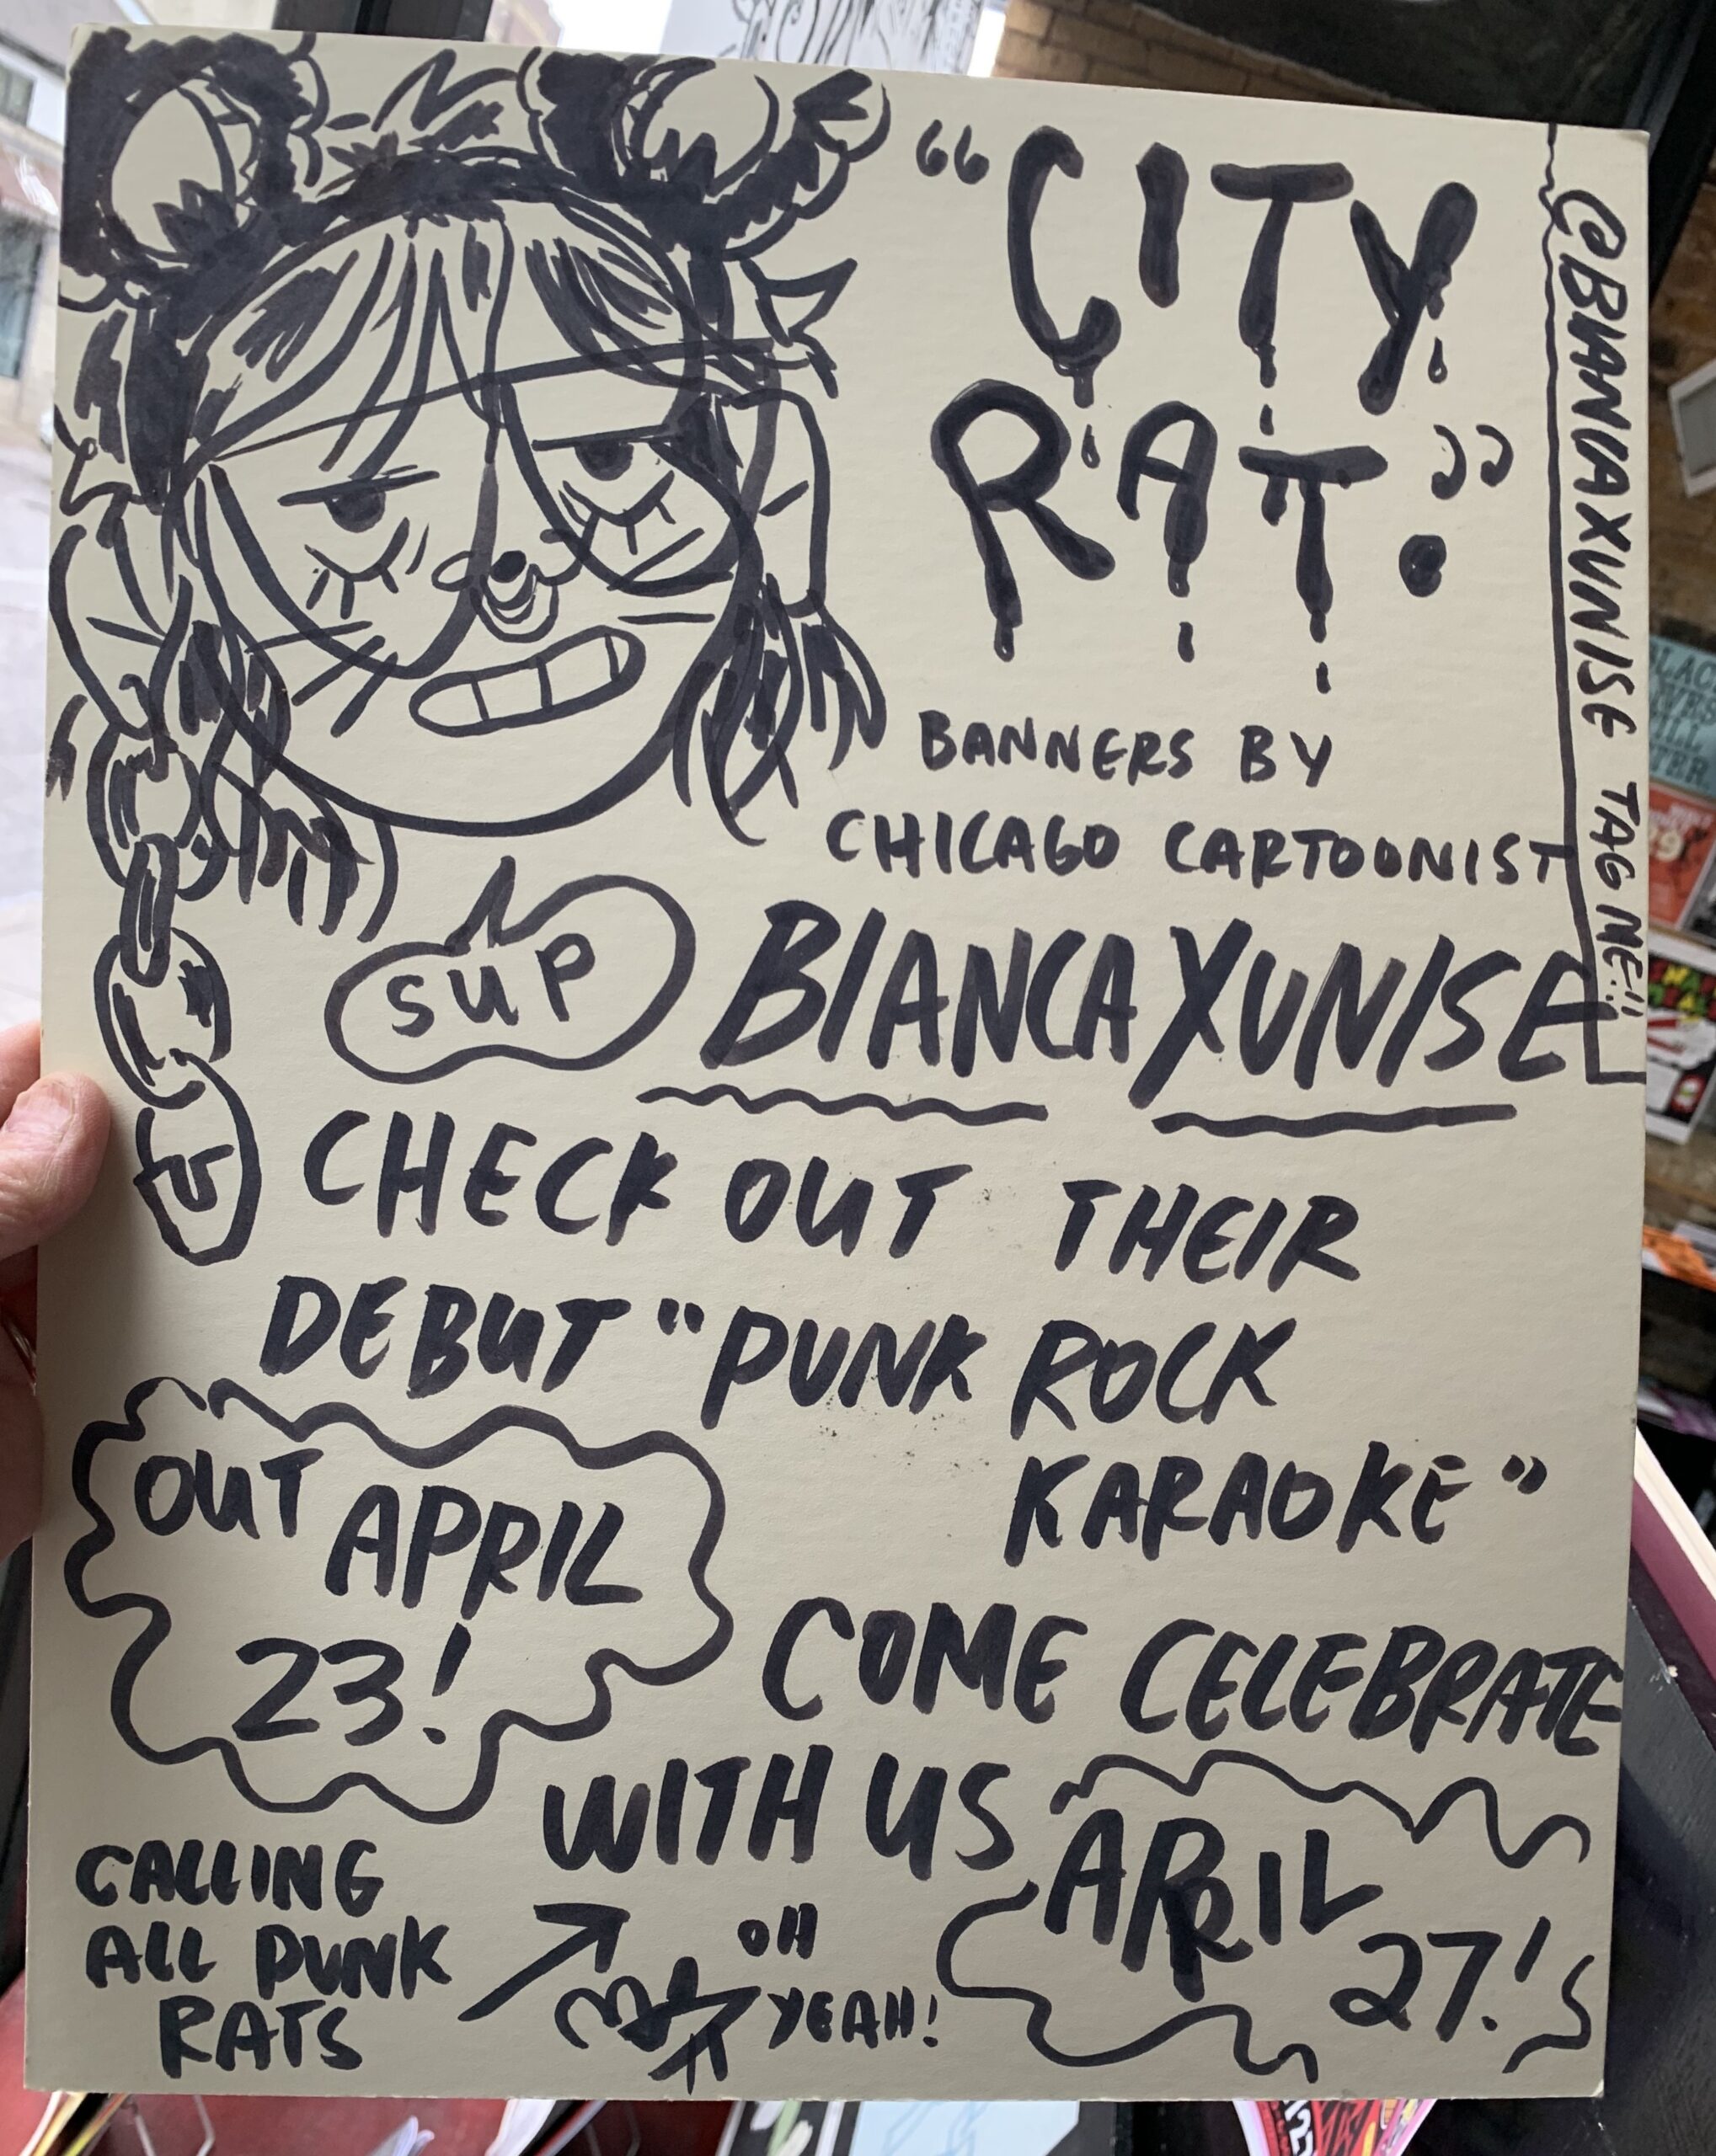 “CITY
RAT”.
BANNERS BY
CHICAGO CARTOONIST
BIANCA XUNISE
@BIANCAXUNISE TAG ME!!
SUP
CHECK OUT THEIR
DEBUT “PUNK ROCK
KARAOKE”
OUT APRIL
23!
COME CELEBRATE
WITH US APRIL
27!
CALLING
ALL PUNK
RATS
OH
YEAH!